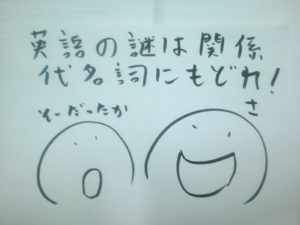 英語の謎は関係
代名詞にもどれ！
そーだったか
さ